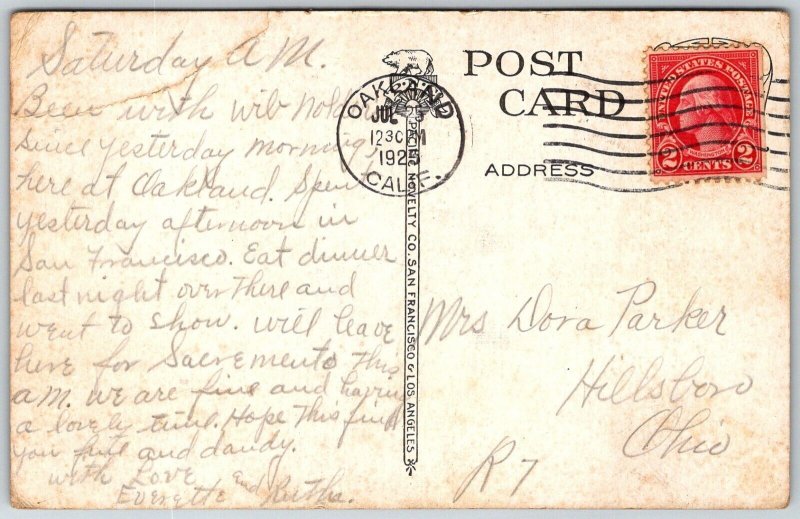 Saturday A.M.
Been with Wib
since yesterday morning,
here at Oakland. Spent
yesterday afternoon in
San Francisco. Eat dinner
last night over there and
went to show. will leave
here for Sacremento This
a.m. we are fine and having
a lovely time. Hope This find
you fine and dandy.
with Love
Everette and Ruth.
PACIFIC NOVELTY CO. SAN FRANCISCO & LOS ANGELES
OAKLAND
JUL
1230 PM
192
CALIF.
POST
CARD
ADDRESS
UNITED STATES POSTAGE
WASHINGTON
2 CENTS 2
Mrs Dora Parker
Hillsboro
Ohio
R 7